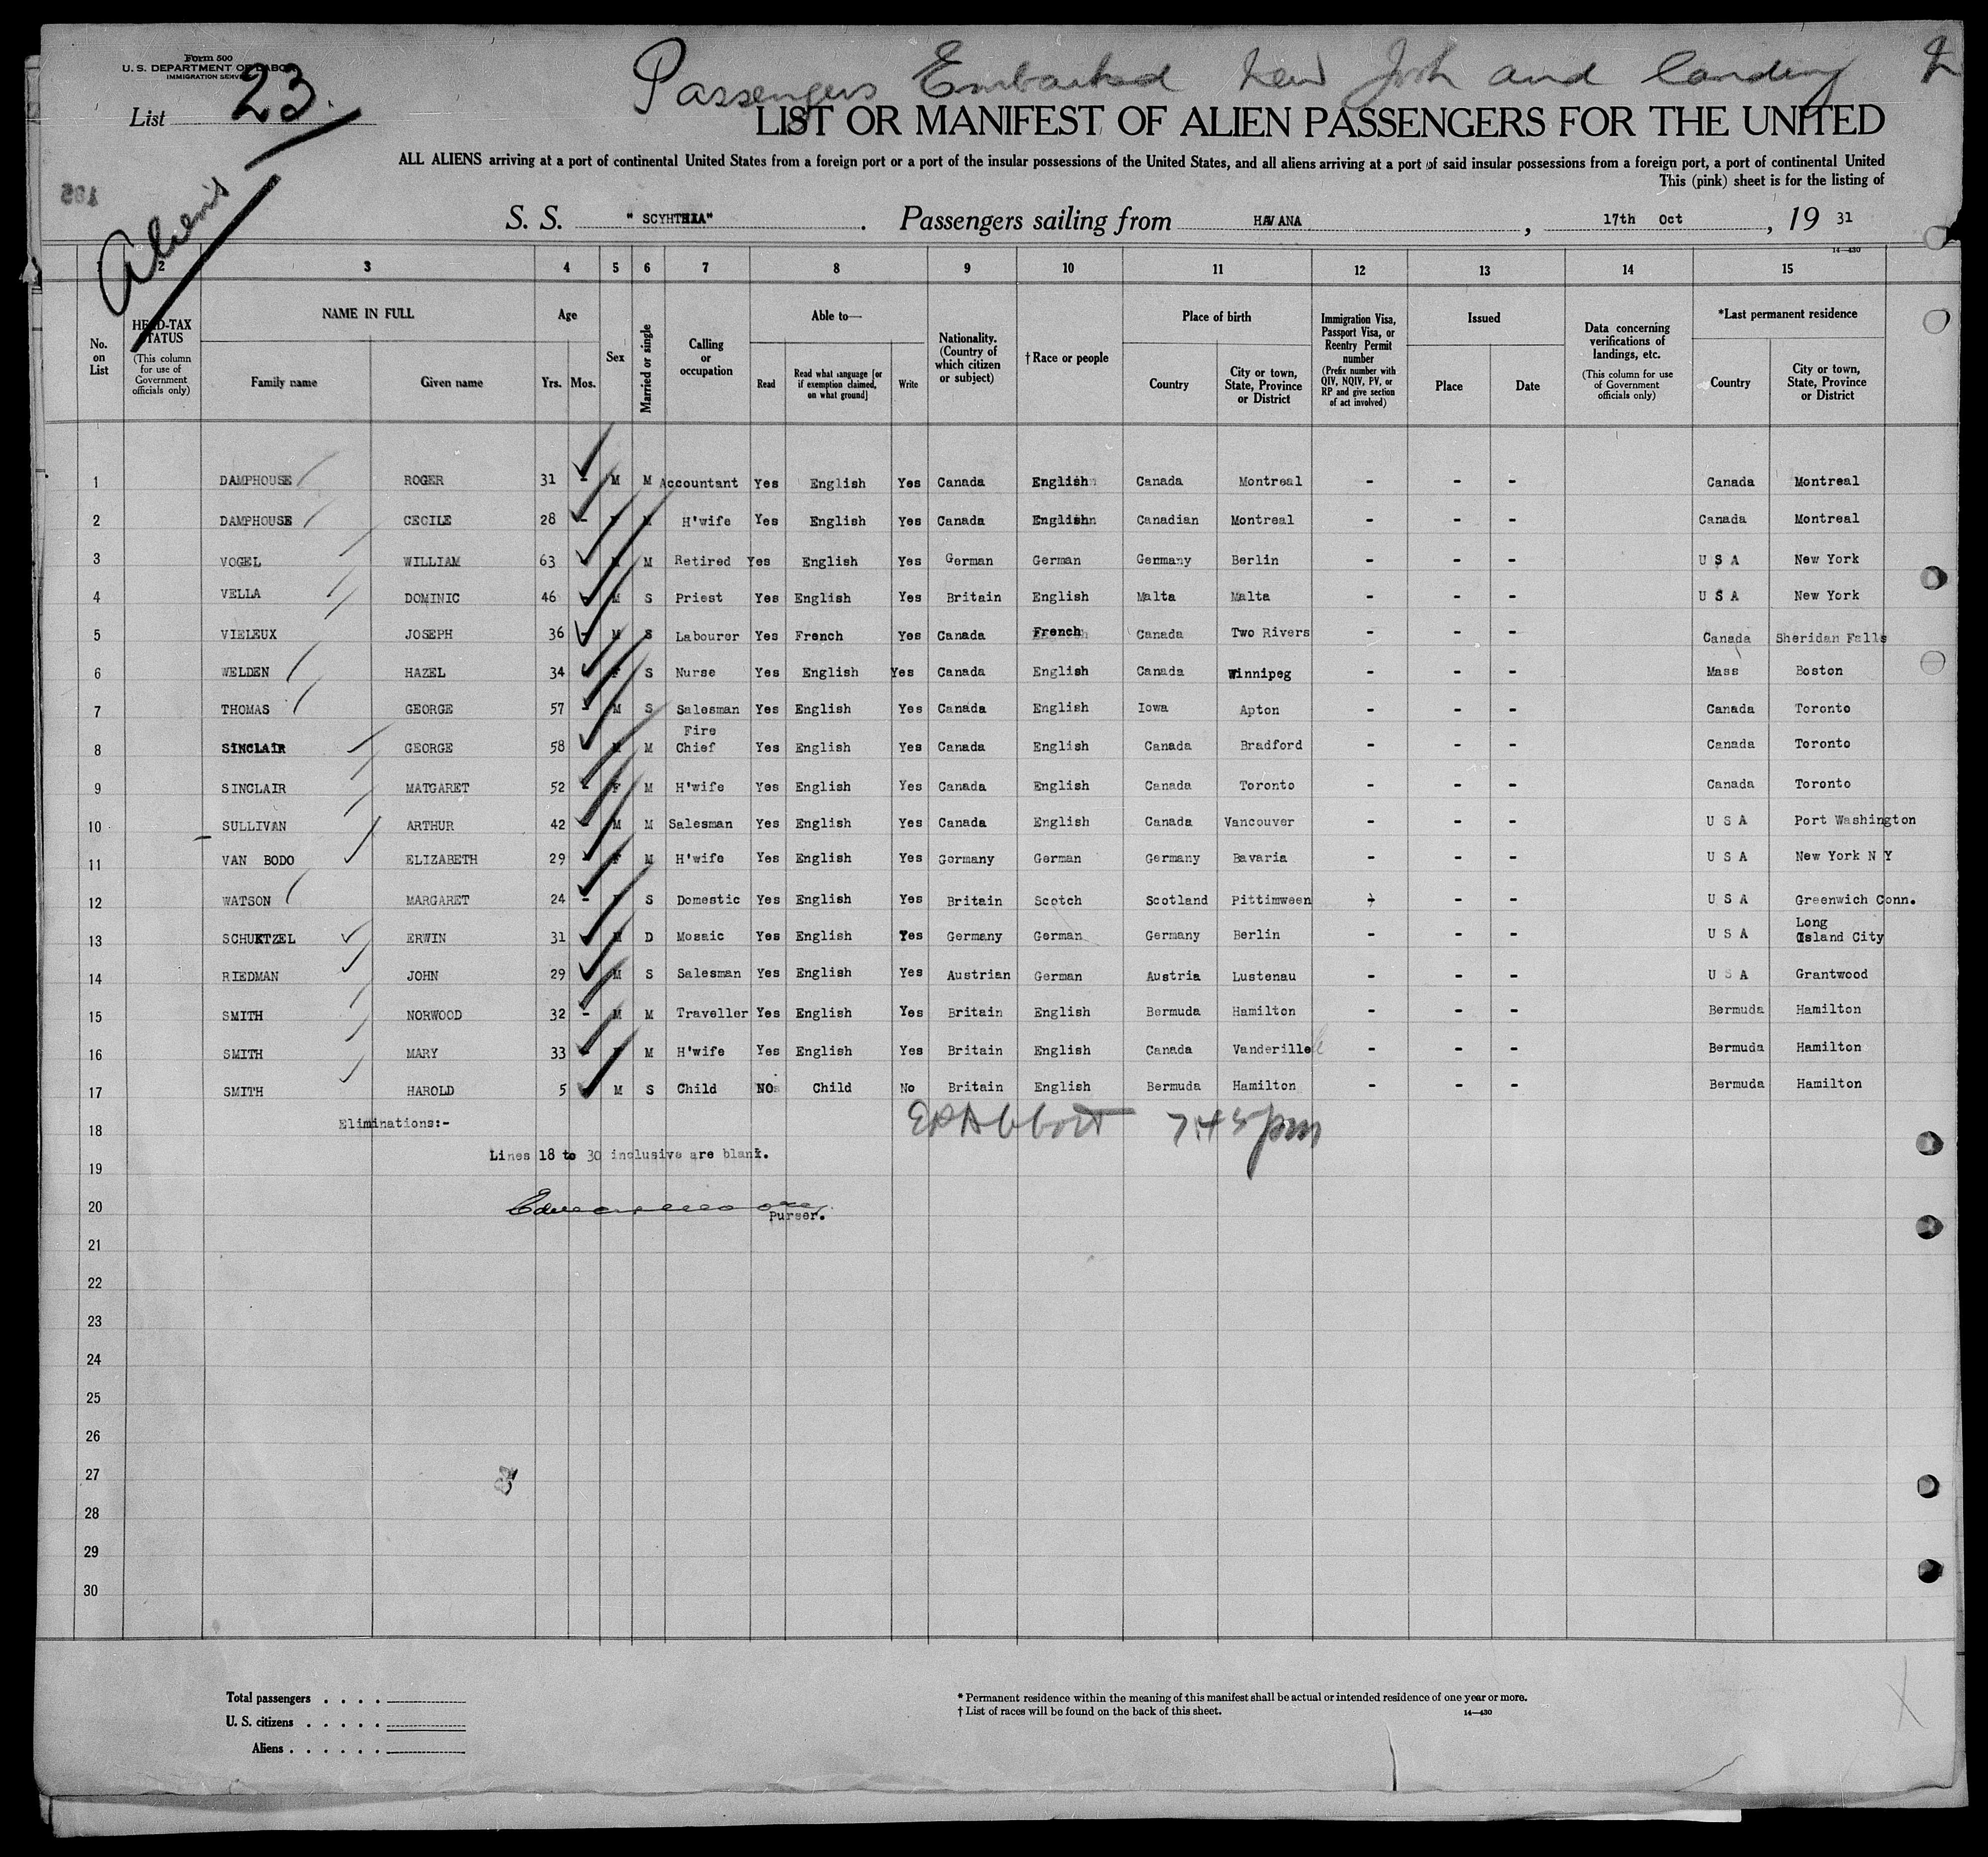 Form 500
U. S. DEPARTMENT OF LABOR
IMMIGRATION SERVICE
List 23.
Aliens
Passengers Embarked New York and landing
LIST OR MANIFEST OF ALIEN PASSENGERS FOR THE UNITED
ALL ALIENS arriving at a port of continental United States from a foreign port or a port of the insular possessions of the United States, and all aliens arriving at a port of said insular possessions from a foreign port, a port of continental United
This (pink) sheet is for the listing of
S. S. "SCYHTHIA". Passengers sailing from HAVANA, 17th Oct, 19 31
14—430
1 2 3 4 5 6 7 8 9 10 11 12 13 14 15
No. on List
HEAD-TAX STATUS (This column for use of Government officials only)
NAME IN FULL
Family name Given name
Age
Yrs. Mos.
Sex
Married or single
Calling or occupation
Able to—
Read Read what language [or if exemption claimed, on what ground] Write
Nationality. (Country of which citizen or subject)
†Race or people
Place of birth
Country City or town, State, Province or District
Immigration Visa, Passport Visa, or Reentry Permit number (Prefix number with QIV, NQIV, PV, or RP and give section of act involved)
Issued
Place Date
Data concerning verifications of landings, etc. (This column for use of Government officials only)
*Last permanent residence
Country City or town, State, Province or District
1 DAMPHOUSE ROGER 31 - M M Accountant Yes English Yes Canada English Canada Montreal - - - Canada Montreal
2 DAMPHOUSE CECILE 28 - F M H'wife Yes English Yes Canada English Canadian Montreal - - - Canada Montreal
3 VOGEL WILLIAM 63 M M Retired Yes English Yes German German Germany Berlin - - - U S A New York
4 VELLA DOMINIC 46 - M S Priest Yes English Yes Britain English Malta Malta - - - U S A New York
5 VIELEUX JOSEPH 36 - M S Labourer Yes French Yes Canada French Canada Two Rivers - - - Canada Sheridan Falls
6 WELDEN HAZEL 34 F S Nurse Yes English Yes Canada English Canada Winnipeg - - - Mass Boston
7 THOMAS GEORGE 57 - M S Salesman Yes English Yes Canada English Iowa Apton - - - Canada Toronto
8 SINCLAIR GEORGE 58 M M Fire Chief Yes English Yes Canada English Canada Bradford - - - Canada Toronto
9 SINCLAIR MATGARET 52 - F M H'wife Yes English Yes Canada English Canada Toronto - - - Canada Toronto
10 SULLIVAN ARTHUR 42 - M M Salesman Yes English Yes Canada English Canada Vancouver - - - U S A Port Washington
11 VAN BODO ELIZABETH 29 F M H'wife Yes English Yes Germany German Germany Bavaria - - - U S A New York N Y
12 WATSON MARGARET 24 - F S Domestic Yes English Yes Britain Scotch Scotland Pittimween - - - U S A Greenwich Conn.
13 SCHUKTZEL ERWIN 31 M D Mosaic Yes English Yes Germany German Germany Berlin - - - U S A Long Island City
14 RIEDMAN JOHN 29 M S Salesman Yes English Yes Austrian German Austria Lustenau - - - U S A Grantwood
15 SMITH NORWOOD 32 - M M Traveller Yes English Yes Britain English Bermuda Hamilton - - - Bermuda Hamilton
16 SMITH MARY 33 - F M H'wife Yes English Yes Britain English Canada Vanderille - - - Bermuda Hamilton
17 SMITH HAROLD 5 M S Child NO Child No Britain English Bermuda Hamilton - - - Bermuda Hamilton
18 Eliminations:- 7.45 pm
Lines 18 to 30 inclusive are blank.
19
20
Purser.
21
22
23
24
25
26
27
28
29
30
Total passengers . . . .
U. S. citizens . . . . .
Aliens . . . . . .
* Permanent residence within the meaning of this manifest shall be actual or intended residence of one year or more.
† List of races will be found on the back of this sheet. 14—430